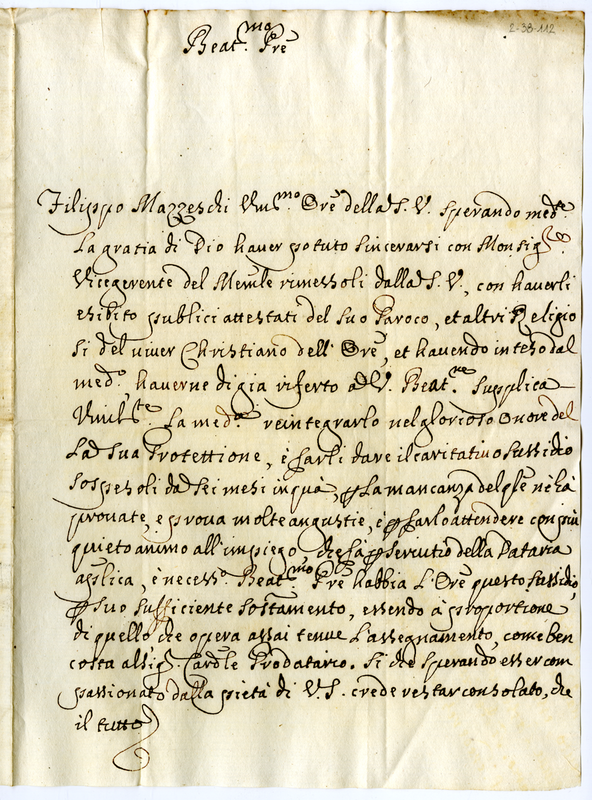 2-38-112
Beat.mo Pre
Filippo Mazzeschi Umil.mo Ore della S. V. sperando med.te
La gratia di Dio haver potuto sincerarsi con Monsig.re
Vicegerente del Mem.le rimessoli dalla S. V., con haverli
esibito publici attestati del suo Paroco, et altri Religio
si del viver Christiano dell' Ore, et havendo inteso dal
med.o haverne di gia riferto a V. Beat.ne supplica
Umilm.te La med.a reintegrarlo nel glorioso Onore del
La sua Protettione, è farli dare il caritativo sussidio
sospesoli da sei mesi in quà, p La mancanza del q̃le nè hà
provate, e prova molte angustie, è p farlo attendere con più
quieto animo all' impiego che fà p servitio della Dataria
ap̃lica, è necess.o Beat.mo Pre habbia L' Ore questo sussidio,
p suo sufficiente sostamento, essendo à proportione
di quello che opera assai tenue L'assegnamento, come ben
costa al sig. Card.le Prodatario. Si che sperando esser com
passionato dalla pietà di V. S. crede restar consolato, che
il tutto